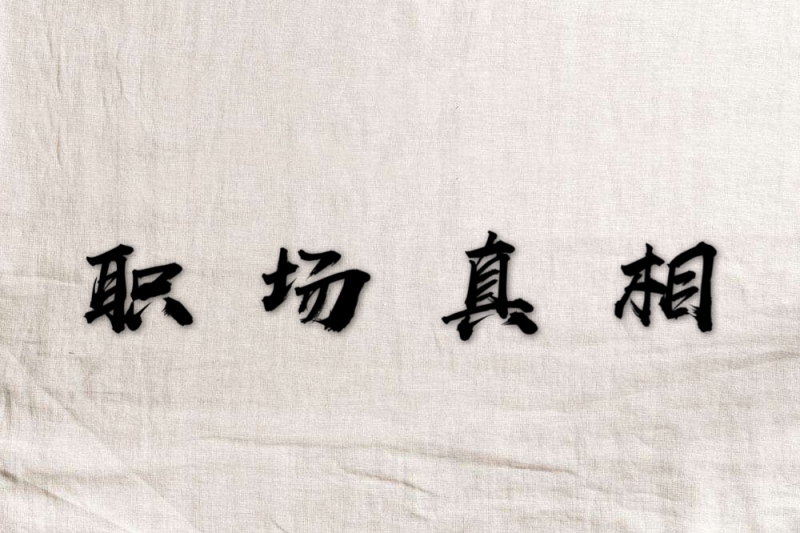 职场真相